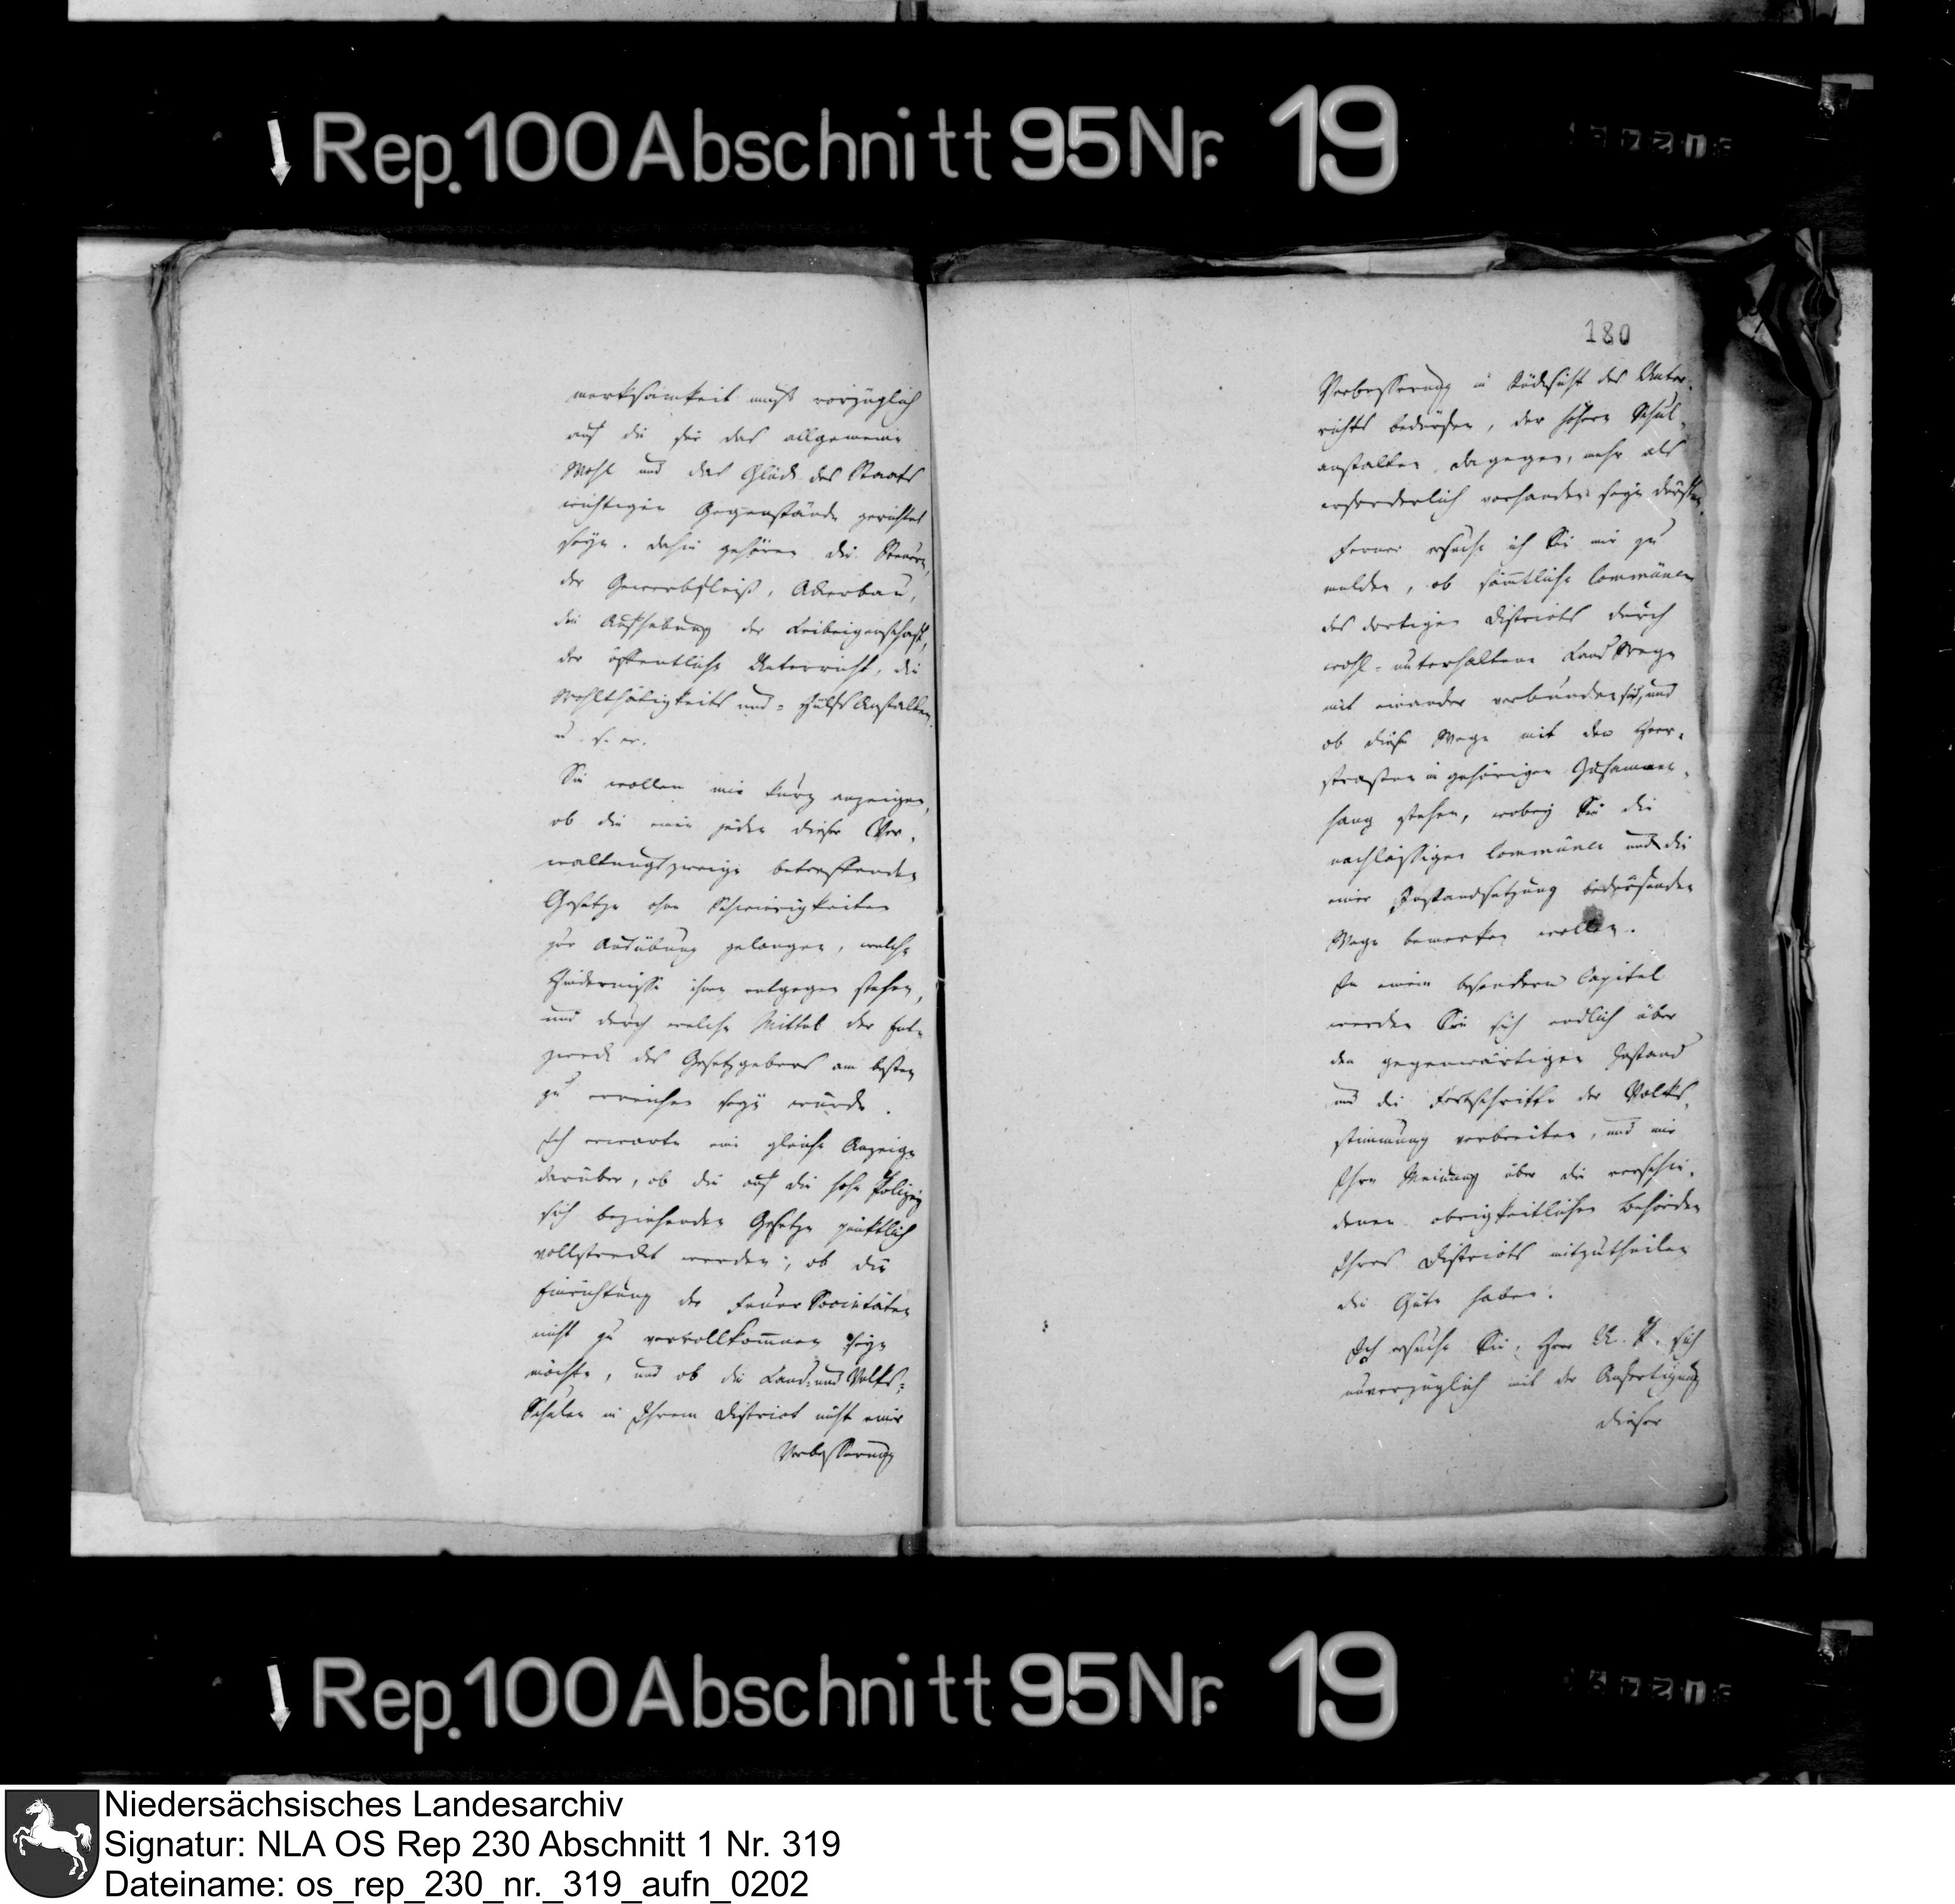 Rep. 100 Abschnitt 95 Nr. 19
merksamkeit muß vorzüglich
auf die für das allgemeine
Wohl und das Glück des Staats
wichtigen Gegenstände gerichtet
seyn. dahin gehören die Steuern,
der Gewerbfleiß, Ackerbau,
die Aufhebung der Leibeigenschaft,
der öffentliche Unterricht, die
Wohlthätigkeits und = Hülfs Anstalten
u. s. w.
Sie wollen mir kurz anzeigen,
ob die einen jeden dieser Ver-
waltungszweige betreffenden
Gesetze ohne Schwierigkeiten
zur Ausübung gelangen, welche
Hindernisse ihnen entgegen stehen,
und durch welche Mittel der End-
zweck des Gesetzgebers am besten
zu erreichen seyn würde.
Ich erwarte eine gleiche Anzeige
darüber, ob die auf die hohe Polizey
sich beziehenden Gesetze pünktlich
vollstreckt werden; ob die
Einrichtung der Feuer Societäten
nicht zu vervollkom̅nen seyn
möchte, und ob die Land- und Volks-
Schulen in Ihrem District nicht einer
Verbesserung
180
Verbesserung in Rücksicht des Unter-
richts bedürfen, der höhern Schul-
anstalten dagegen, mehr als
erforderlich vorhanden seyn dürften.
Ferner ersuche ich Sie mir zu
melden, ob säm̅tliche Communen
des dortigen Districts durch
wohl-unterhaltene Land Wege
mit einander verbunden sind, und
ob diese Wege mit den Heer-
straßen in gehörigen Zusammen-
hang stehen, wobey Sie die
nachläßigen Communen und die
einer Instandsetzung bedürfenden
Wege bemerken wollen.
In einem besondern Capitel
werden Sie sich endlich über
den gegenwärtigen Zustand
und die Fortschritte der Volks-
stimmung verbreiten, und mir
Ihre Meinung über die verschie-
denen obrigkeitlichen Behörden
Ihres Districts mitzutheilen
die Güte haben.
Ich ersuche Sie, Herr U. P. sich
unverzüglich mit der Anfertigung
dieser
Rep. 100 Abschnitt 95 Nr. 19
Niedersächsisches Landesarchiv
Signatur: NLA OS Rep 230 Abschnitt 1 Nr. 319
Dateiname: os_rep_230_nr._319_aufn_0202